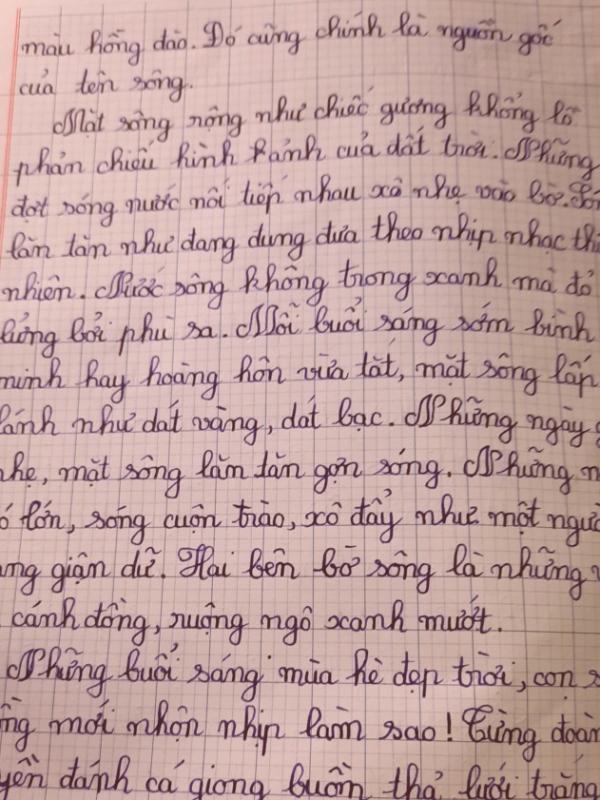 màu hồng đào. Đó cũng chính là nguồn gốc
của tên sông.
Mặt sông rộng như chiếc gương khổng lồ
phản chiếu hình ảnh của đất trời. Những
đợt sóng nước nối tiếp nhau xô nhẹ vào bờ.
lăn tăn như đang đung đưa theo nhịp nhạc
nhiên. Nước sông không trong xanh mà đỏ
lửng bởi phù sa. Mỗi buổi sáng sớm bình
minh hay hoàng hôn vừa tắt, mặt sông lấp
lánh như dát vàng, dát bạc. Những ngày
nhẹ, mặt sông lăn tăn gợn sóng. Những
ó lớn, sóng cuộn trào, xô đẩy như một ngườ
ang giận dữ. Hai bên bờ sông là những
cánh đồng, ruộng ngô xanh mướt.
Những buổi sáng mùa hè đẹp trời, con s
ồng mới nhộn nhịp làm sao! Từng đoàn
yền đánh cá giong buồm thả lưới trắng